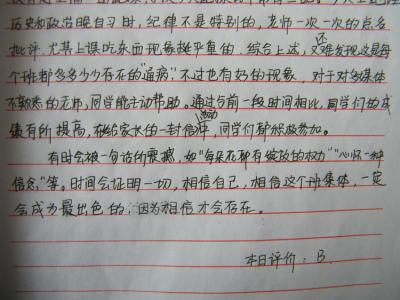 历史和政治晚自习时，纪律不是特别的好，老师一次一次的点名
批评，尤其上课吃东西现象挺严重的，综合上述，还不难发现这是每
个班都多多少少存在的“通病”，不过也有好的现象，对于对多媒体
不熟悉的老师，同学能主动帮助。通过与前一段时间相比，同学们的成
绩有所提高，在给家长的一封信活动中，同学们都积极参加。
有时会被一句话的震撼，如“每朵花都有绽放的权力”“心怀一种
信念”等。时间会证明一切，相信自己，相信这个班集体，一定
会成为最出色的，因为相信才会存在。
本日评价：B